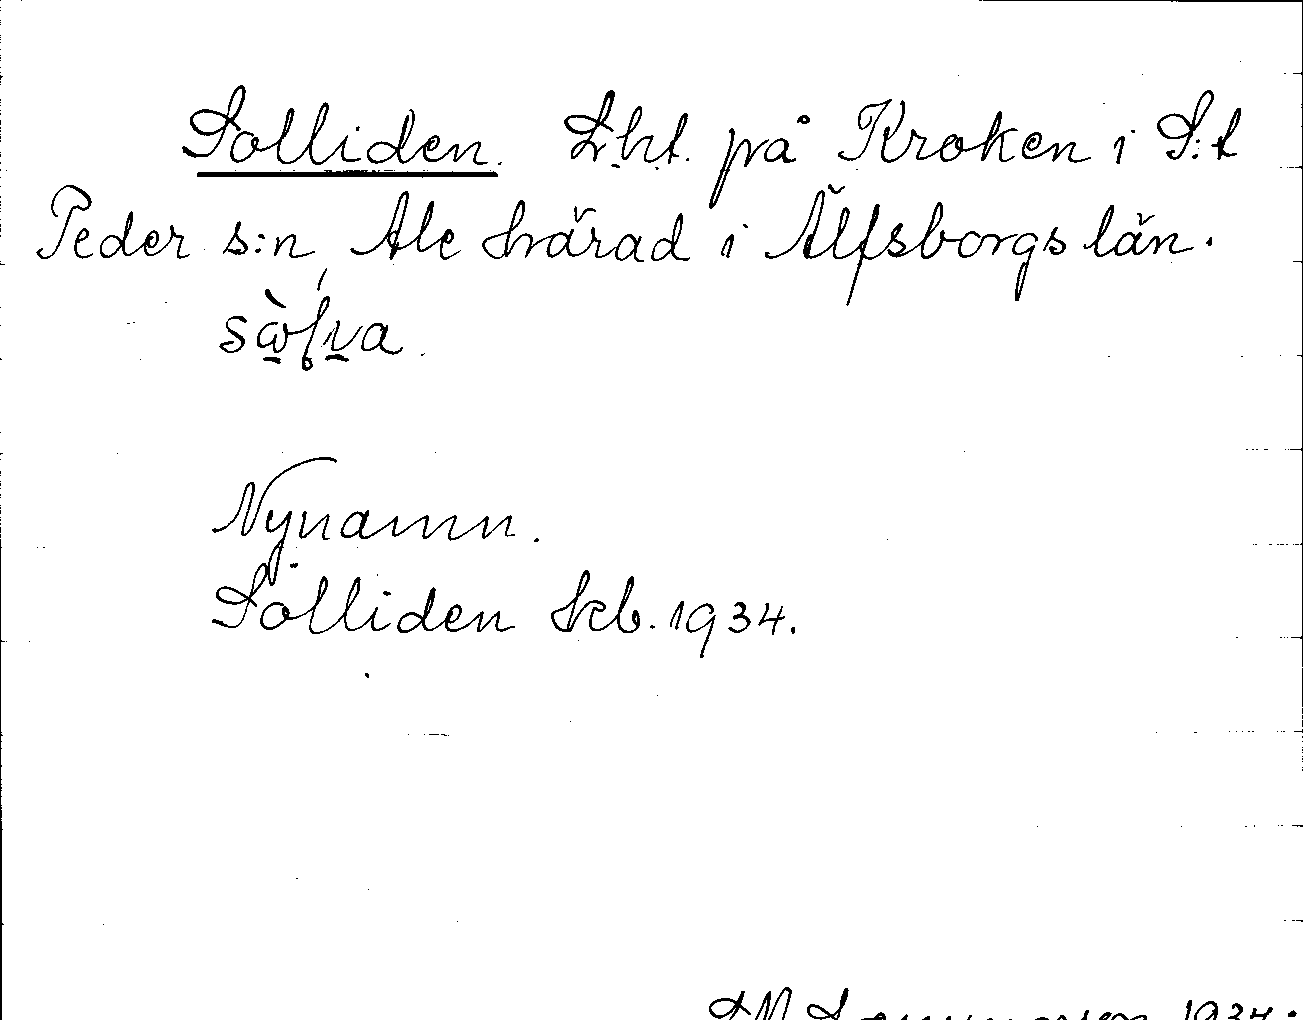 Solliden. Lht. på Kroken i S:t
Peder s:n, Ale härad i Älfsborgs län.
Nynamn.
Solliden Jeb. 1934.
1934.